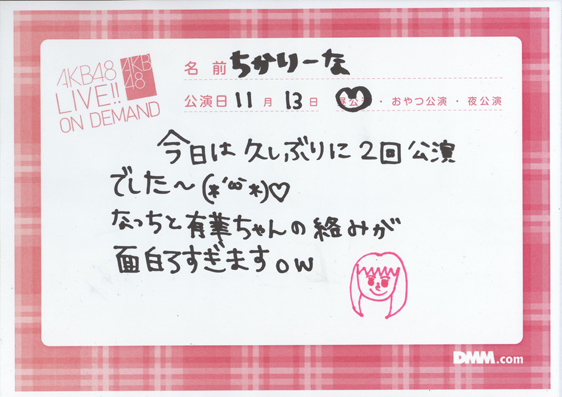 AKB48
LIVE!!
ON DEMAND
AKB
48
名前 ちかりーな
公演日 11月 13日 昼公・おやつ公演・夜公演
今日は久しぶりに2回公演
でした～(*´ω`*)♡
なっちと有華ちゃんの絡みが
面白ろすぎます。w
DMM.com